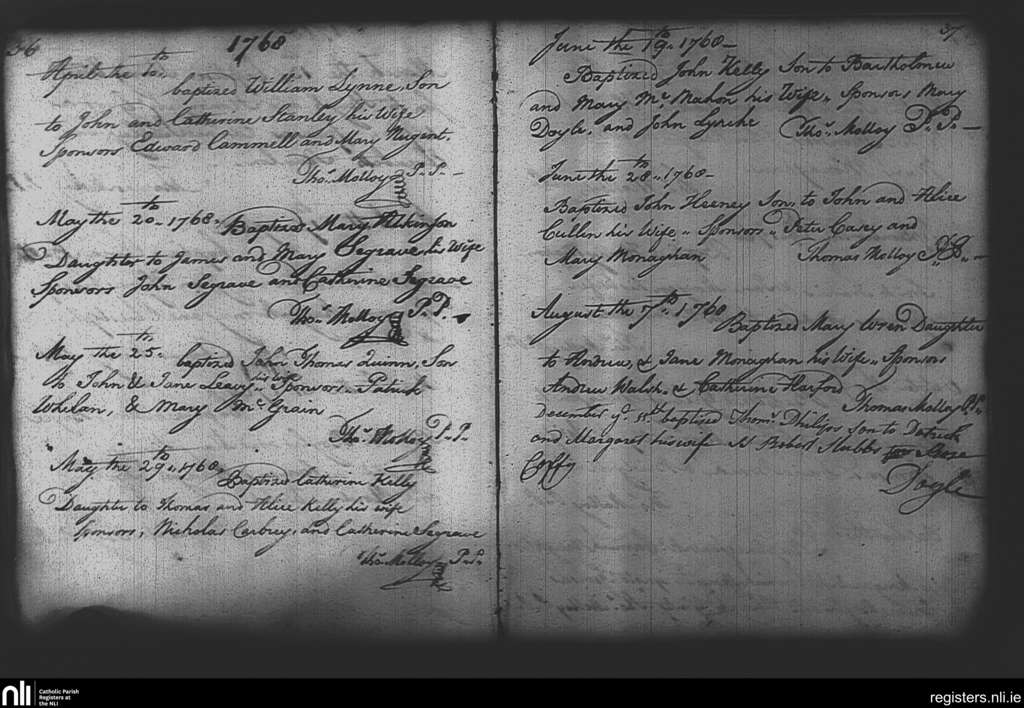 36
1768
April the 10th baptized William Lynne, Son
to John and Catherine Stanley his Wife
Sponsors Edward Cammell and Mary Nugent.
Thos. Molloy P. P.
May the 20th 1768. Baptized Mary Atkinson
Daughter to James and Mary Segrave his Wife
Sponsors John Segrave and Catherine Segrave
Thos. Molloy P. P.
May the 25th baptized John Thomas Quinn, Son
to John & Jane Leavy his wife Sponsors. Patrick
Whelan, & Mary McGrain
Thos. Molloy P. P.
May the 29th 1768 Baptized Catherine Kelly
Daughter to Thomas and Alice Kelly his wife
Sponsors, Nicholas Carbrey, and Catherine Segrave
Thos. Molloy P. P.
37
June the 19th 1768
Baptized John Kelly Son to Bartholomew
and Mary Mc Mahon his Wife, Sponsors Mary
Doyle, and John Thos. Molloy P. P.
June the 28th 1768
Baptized John Heaney Son to John and Alice
Cullin his Wife, Sponsors, Peter Casey and
Mary Monaghan Thomas Molloy P. P.
August the 7th 1768 Baptized Mary Wren Daughter
to Andrew, & Jane Monaghan his Wife, Sponsors
Andrew Walsh, & Catherine Harford
Thomas Molloy P. P.
December ye. 11th baptised Thoms. Philips son to Patrick
and Margaret his wife Robert Stubbs
Coffy
Doyle
nli Catholic Parish
Registers at
the NLI
registers.nli.ie